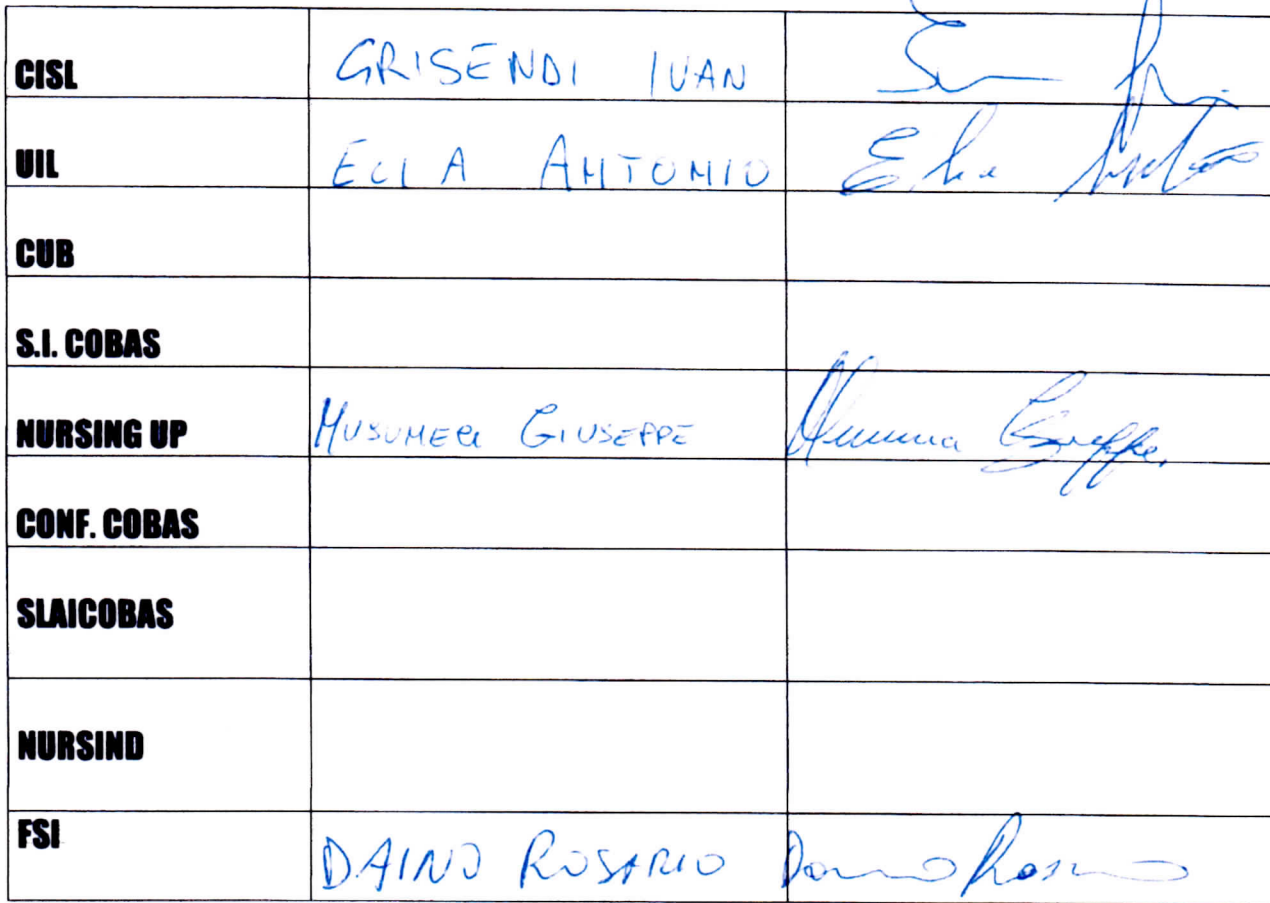 CISL GRISENDI IVAN
UIL ELIA ANTONIO Elia Antonio
CUB
S.I. COBAS
NURSING UP MUSUMECI GIUSEPPE Giuseppe
CONF. COBAS
SLAICOBAS
NURSIND
FSI DAINO ROSARIO Daino Rosario